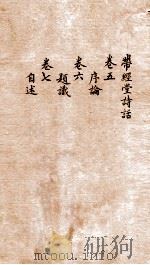 帶經堂詩話
卷五
序論
卷六
題識
卷七
自述